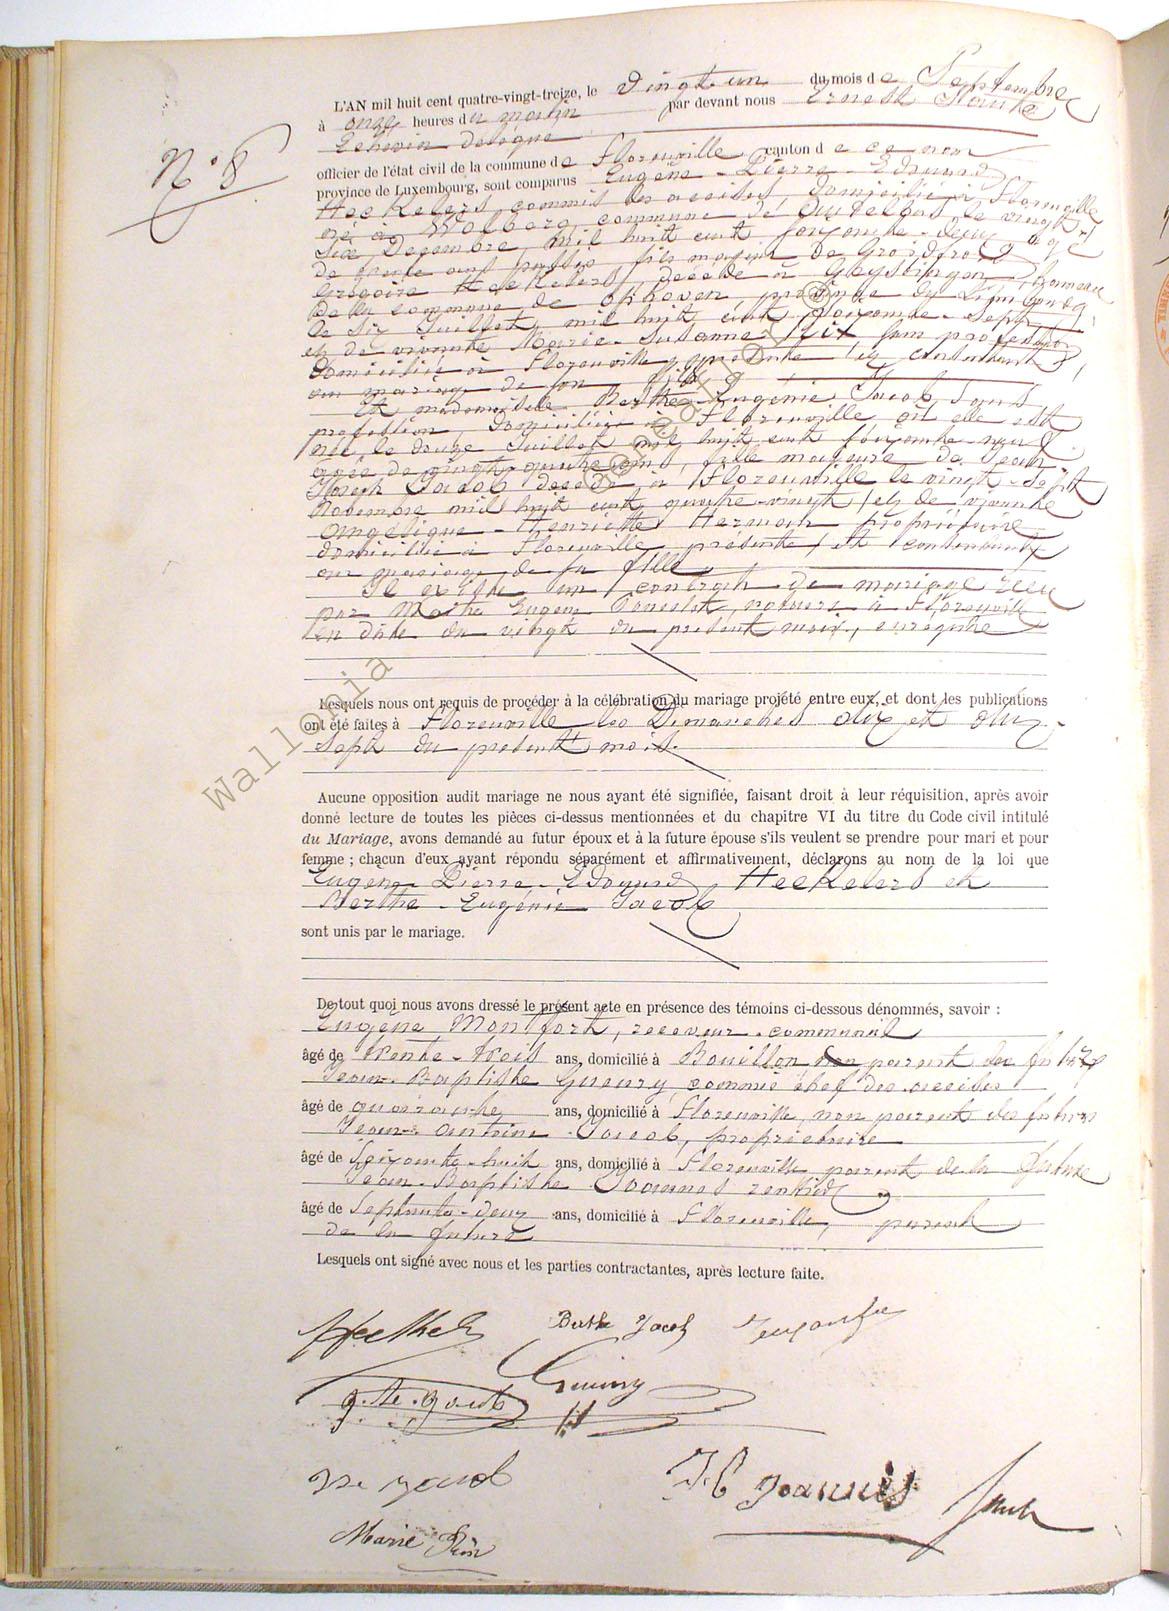 N° 8
L'AN mil huit cent quatre-vingt-treize, le vingt un du mois de Septembre
à onze heures du matin par devant nous Ernest
Echevin délégué
officier de l'état civil de la commune de Florenville canton de ce nom
province de Luxembourg, sont comparus Eugène-Pierre-Edouard
Heckelers, commis des accises, domicilié à Florenville
né à Wolberg, commune de le vingt
six Decembre, mil huit cent soixante-deux agé
de trente ans passés, fils majeur de
Grégoire Heckelers, décédé à hameau
de la commune de Ophoven, province du Limbourg,
le six Juillet, mil huit cent soixante-sept
et de vivante Marie-Susanne sans profession
domiciliée à Florenville, présente et consentant
au mariage de son fils
Et mademoiselle Berthe-Eugénie Jacob, sans
profession, domiciliée à Florenville où elle est
née, le douze Juillet mil huit cent soixante-neuf
agée de vingt-quatre ans, fille majeure de Jean
Joseph Jacob décédé à Florenville le vingt-sept
Novembre mil huit cent quatre-vingt et de vivante
Angélique-Henriette Herman propriétaire
domiciliée à Florenville, présente et consentante
au mariage de sa fille
Il existe un contrat de mariage reçu
par Maître Eugène notaire à Florenville
en date du vingt du présent mois, enregistré
Lesquels nous ont requis de procéder à la célébration du mariage projeté entre eux, et dont les publications
ont été faites à Florenville les Dimanches dix et dix
sept du présent mois.
Aucune opposition audit mariage ne nous ayant été signifiée, faisant droit à leur réquisition, après avoir
donné lecture de toutes les pièces ci-dessus mentionnées et du chapitre VI du titre du Code civil intitulé
du Mariage, avons demandé au futur époux et à la future épouse s'ils veulent se prendre pour mari et pour
femme ; chacun d'eux ayant répondu séparément et affirmativement, déclarons au nom de la loi que
Eugène-Pierre-Edouard Heckelers et
Berthe-Eugénie Jacob
sont unis par le mariage.
De tout quoi nous avons dressé le présent acte en présence des témoins ci-dessous dénommés, savoir :
Eugène Monfort, receveur communal
âgé de trente-trois ans, domicilié à Bouillon non parent des futurs
Jean-Baptiste Gueury, commis chef des accises
âgé de quarante ans, domicilié à Florenville, non parent des futurs
Jean-Antoine Jacob, propriétaire
âgé de soixante-huit ans, domicilié à Florenville parent de la future
Jean-Baptiste Joannes rentier
âgé de septante-deux ans, domicilié à Florenville, parent
de la future
Lesquels ont signé avec nous et les parties contractantes, après lecture faite.
Berthe Jacob
Gueury
Jacob
JB Joannes
Marie
Wallonia
Generations ©